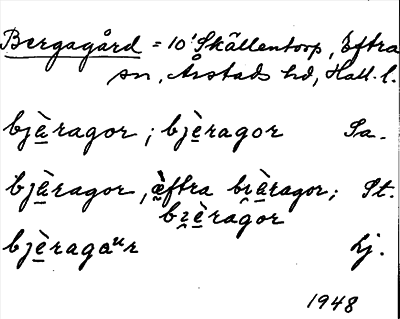 Bergagård = 10' Skällentorp, Eftra
sn, Årstads hd, Hall. l.
bjè̱ragor ; bjè̱ragor Sa.
bjè̱ragor, è̱ftra brè̱ragor; St.
bzè̱ragor
bjè̱ragaᵘr Lj.
1948